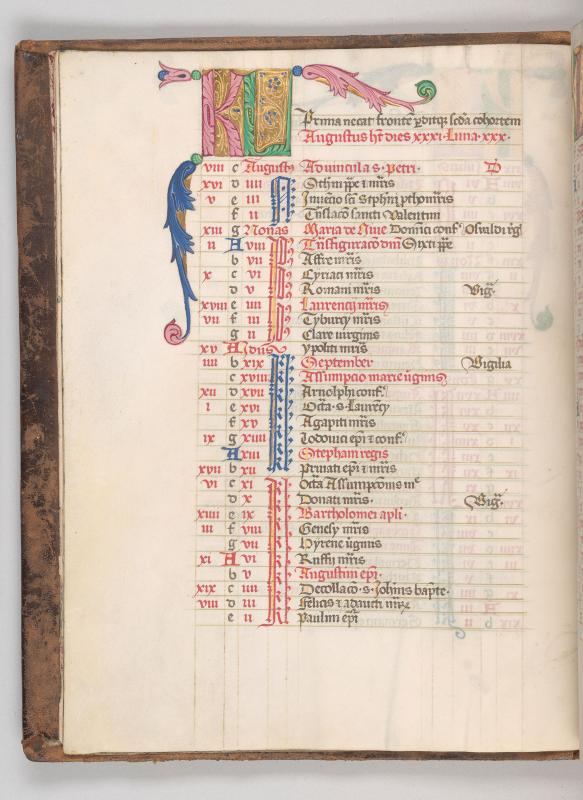 KL
Prima necat fronte ꝑditqꝫ scda cohortem
Augustus ht dies xxxi · Luna · xxx ·
viii c Augusti Ad vincula s · petri · D
xvi d iiii N Sthni ppe ⁊ mris
v e iii Invencio sci Stephni pthomris
f ii Tuslaco sancti Valentini
xiii g Nonas Maria de Nive Dominici conf Osvaldi rg
ii A viii Tnsfiguraco dni Sixti ppe
b vii Affre mris
x c vi Cyriaci mris
d v Romani mris Vig
xviii e iiii Laurencii mris
vii f iii Tyburcy mris
g ii Clare virginis
xv A Idus Ypoliti mris
iiii b xix September Vigilia
c xviii Assumpcio marie vginis
xii d xvii Arnolphi conf
i e xvi Octa · s · Laurety
f xv Agapiti mris
ix g xiiii Lodovici epi ⁊ conf
A xiii Stephani regis
xvii b xii Privati epi ⁊ mris
vi c xi Octa Assumpconis me
d x Donati mris · Vig
xiiii e ix Bartholomei apli ·
iii f viii Genesy mris
g vii Hyrenei vginis
xi A vi Ruffii mris
b v Augustini epi ·
xix c iiii Decollaco · s · Johnis bapte ·
viii d iii Felicis ⁊ adaucti mrꝝ
e ii Paulini epi